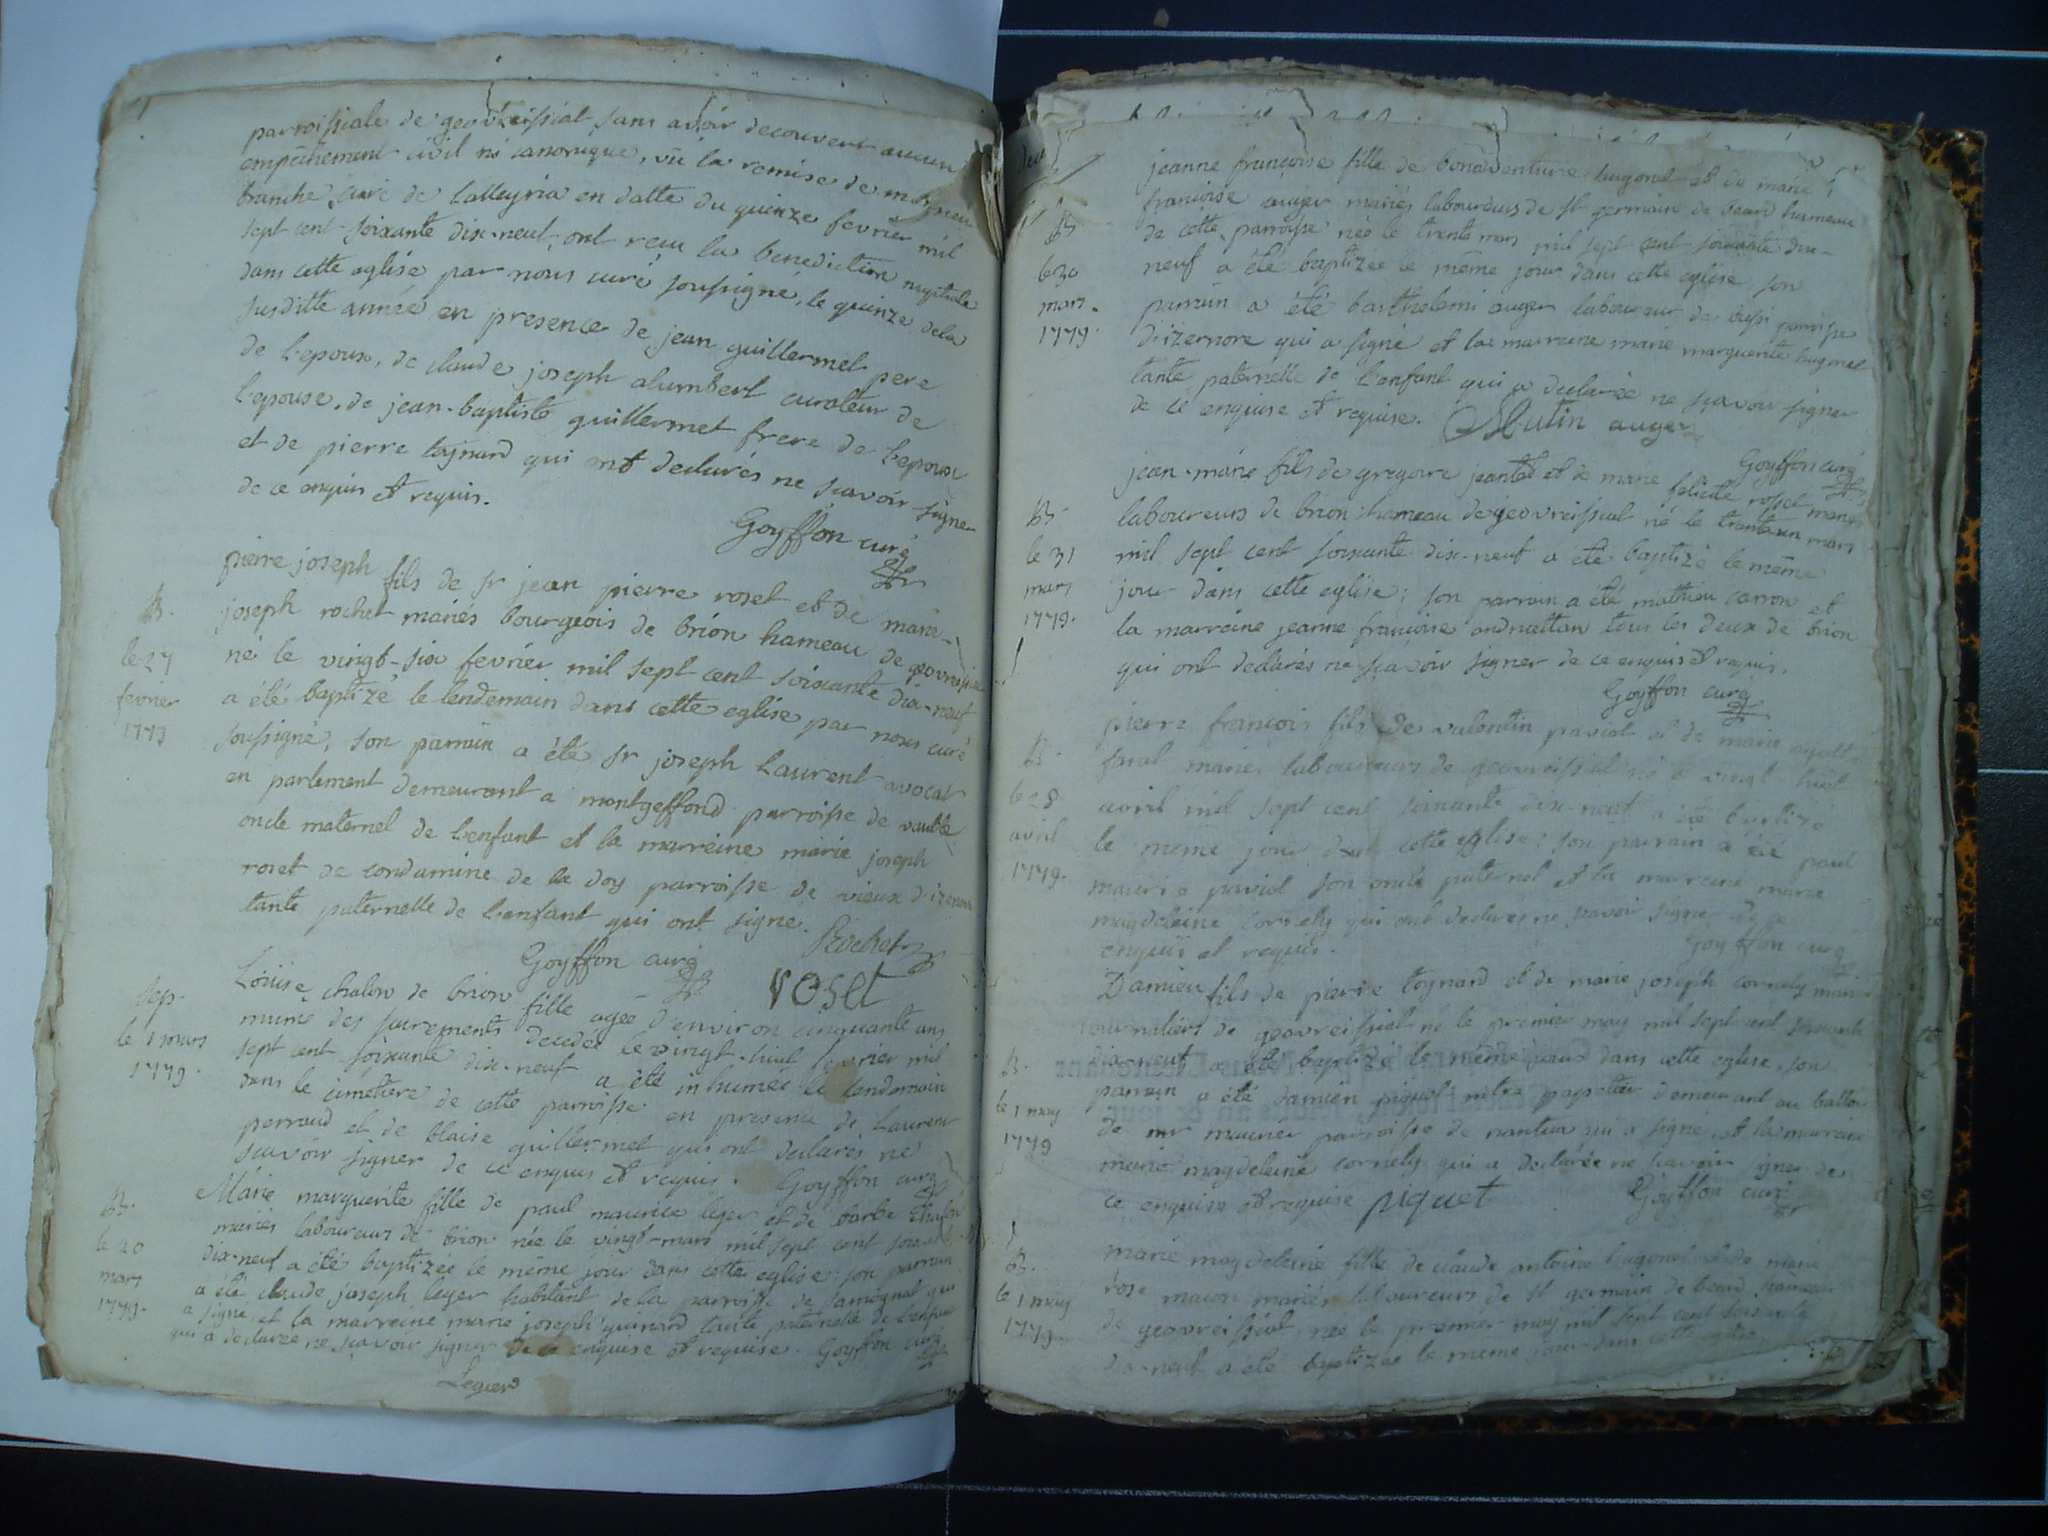 parroissiale de geovreissiat, sans avoir decouvert aucun
empêchement civil ni canonique, vû la remise de
branche, curé de lalleyria en datte du quinze fevrier mil
sept cent soixante dix-neuf, ont reçu la benediction nuptiale
dans cette eglise par nous curé soussigné, le quinze de la
susditte année en presence de jean guillermet pere
de l'epoux, de claude joseph alumbert curateur de
l'epouse, de jean-baptiste guillermet frere de l'epoux
et de pierre toynard qui ont declarés ne scavoir signer
de ce enquis et requis.
Goyffon curé
B.
le 27
fevrier
1779
pierre joseph fils de sr jean pierre roset et de marie-
joseph rochet mariés bourgeois de brion hameau de geovreissia
né le vingt-six fevrier mil sept cent soixante dix-neuf
a été baptizé le lendemain dans cette eglise par nous curé
soussigné, son parrain a été sr joseph laurent avocat
en parlement demeurant a montgeffond parroisse de
oncle maternel de l'enfant et la marreine marie joseph
roset de condamine de la doy parroisse de vieux d'izernore
tante paternelle de l'enfant qui ont signe.
Rochet
Goyffon curé
roset
sep.
le 1 mars
1779.
Loüise chalon de brion fille agée d'environ cinquante ans
munie des sacrements decedée le vingt-huit fevrier mil
sept cent soixante dix-neuf a été inhumée le lendemain
dans le cimetiere de cette parroisse en presence de laurent
perraud et de blaise guillermet qui ont declarés ne
scavoir signer de ce enquis et requis. Goyffon curé
B.
le 20
mars
1779.
Marie marguerite fille de paul maurice leger et de barbe
mariés laboureurs de brion née le vingt-mars mil sept cent soixante
dix-neuf a été baptizée le même jour dans cette eglise: son parrain
a été claude joseph leger habitant de la parroisse de samognat qui
a signé, et la marreine marie joseph guinard tante paternelle de l'enfant
qui a declarée ne scavoir signer de ce enquise et requise. Goyffon curé
Leger
B
le 30
mars.
1779.
jeanne françoise fille de bonaventure hugonet et de marie
françoise auger mariés laboureurs de st germain de beard hameau
de cette parroisse née le trente mars mil sept cent soixante dix-
neuf a été baptizée le même jour dans cette eglise son
parrain a été barthelemi auger laboureur de bussi parroisse
d'izernore qui a signé et la marreine marie marguerite hugonet
tante paternelle de l'enfant qui a declarée ne scavoir signer
de ce enquise et requise. Mutin auger
Goyffon curé
B.
le 31
mars
1779.
jean-marie fils de gregoire jeantet et de marie felicite rosset mariés
laboureurs de brion hameau de geovreissiat né le trente un mars
mil sept cent soixante dix-neuf a été baptizé le même
jour dans cette eglise; son parrain a été mathieu carron et
la marreine jeanne françoise andruettan tous les deux de brion
qui ont declarés ne scavoir signer de ce enquis et requis.
Goyffon curé
B.
le 28
avril
1779.
pierre françois fils de valentin paviot et de marie
mariés laboureurs de geovreissiat né le vingt huit
avril mil sept cent soixante dix-neuf a été baptizé
le meme jour dans cette eglise: son parrain a été paul
maurice paviot son oncle paternel et la marreine marie
magdeleine cornely qui ont declarés ne scavoir signer de ce
enquis et requis.
Goyffon curé
B.
le 1 may
1779
Damien fils de pierre toynard et de marie joseph cornely mariés
journaliers de geovreissiat né le premier may mil sept cent soixante
dix-neuf a été baptizé le même jour dans cette eglise, son
parrain a été damien piquet mêtre papetier demeurant au battoir
de mr maurier parroisse de nantua qui a signé, et la marreine
marie magdeleine cornely qui a declarée ne scavoir signer de
ce enquise et requise piquet Goyffon curé
B.
le 1 may
1779.
marie magdeleine fille de claude antoine hugonet et de marie
rose macon mariés laboureurs de st germain de beard hameau
de geovreissiat, née le premier may mil sept cent soixante
dix-neuf a été baptizée le meme jour dans cette eglise